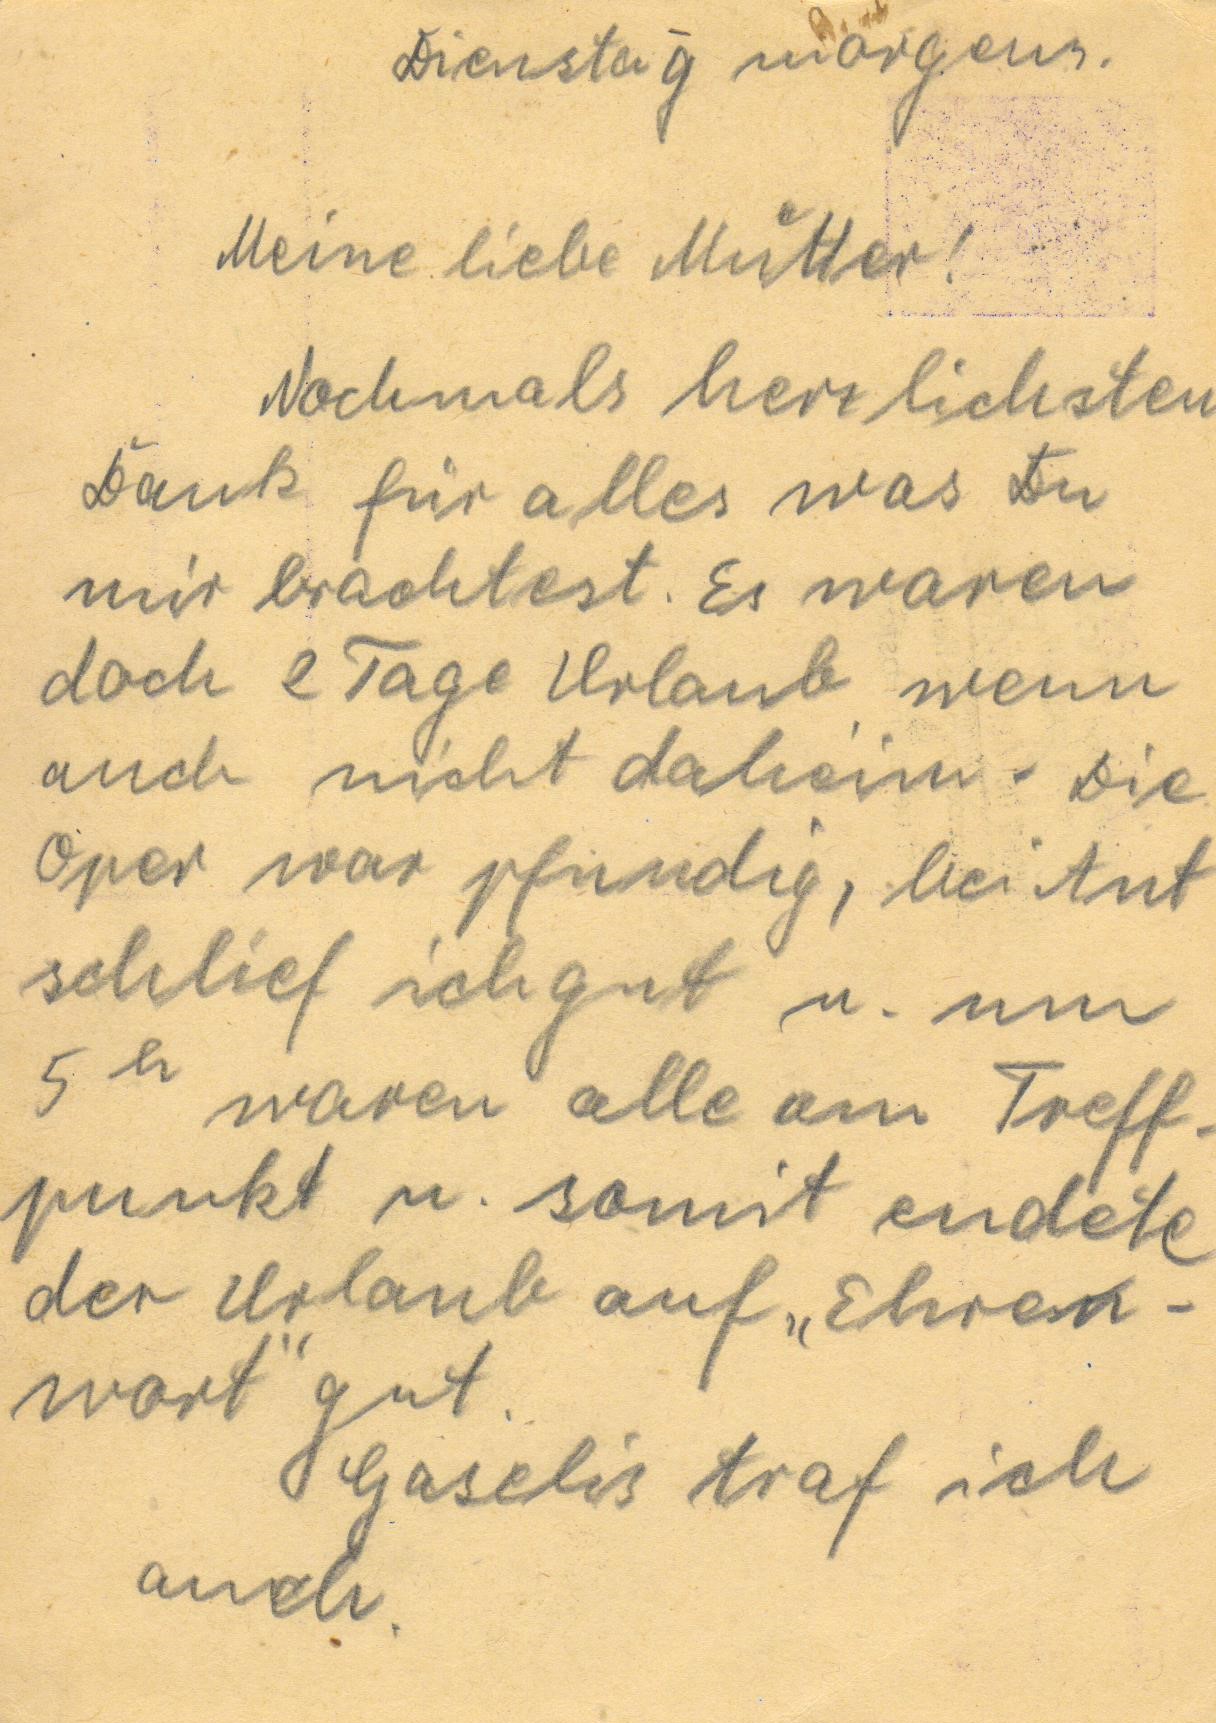 Dienstag morgens.
Meine liebe Mutter!
Nochmals herzlichsten
Dank für alles was Du
mir brachtest. Es waren
doch 2 Tage Urlaub wenn
auch nicht daheim. Die
Oper war pfundig, bei Ant
schlief ich gut u. um
5 h waren alle am Treff-
punkt u. somit endete
der Urlaub auf „Ehren-
wort" gut.
traf ich
auch.